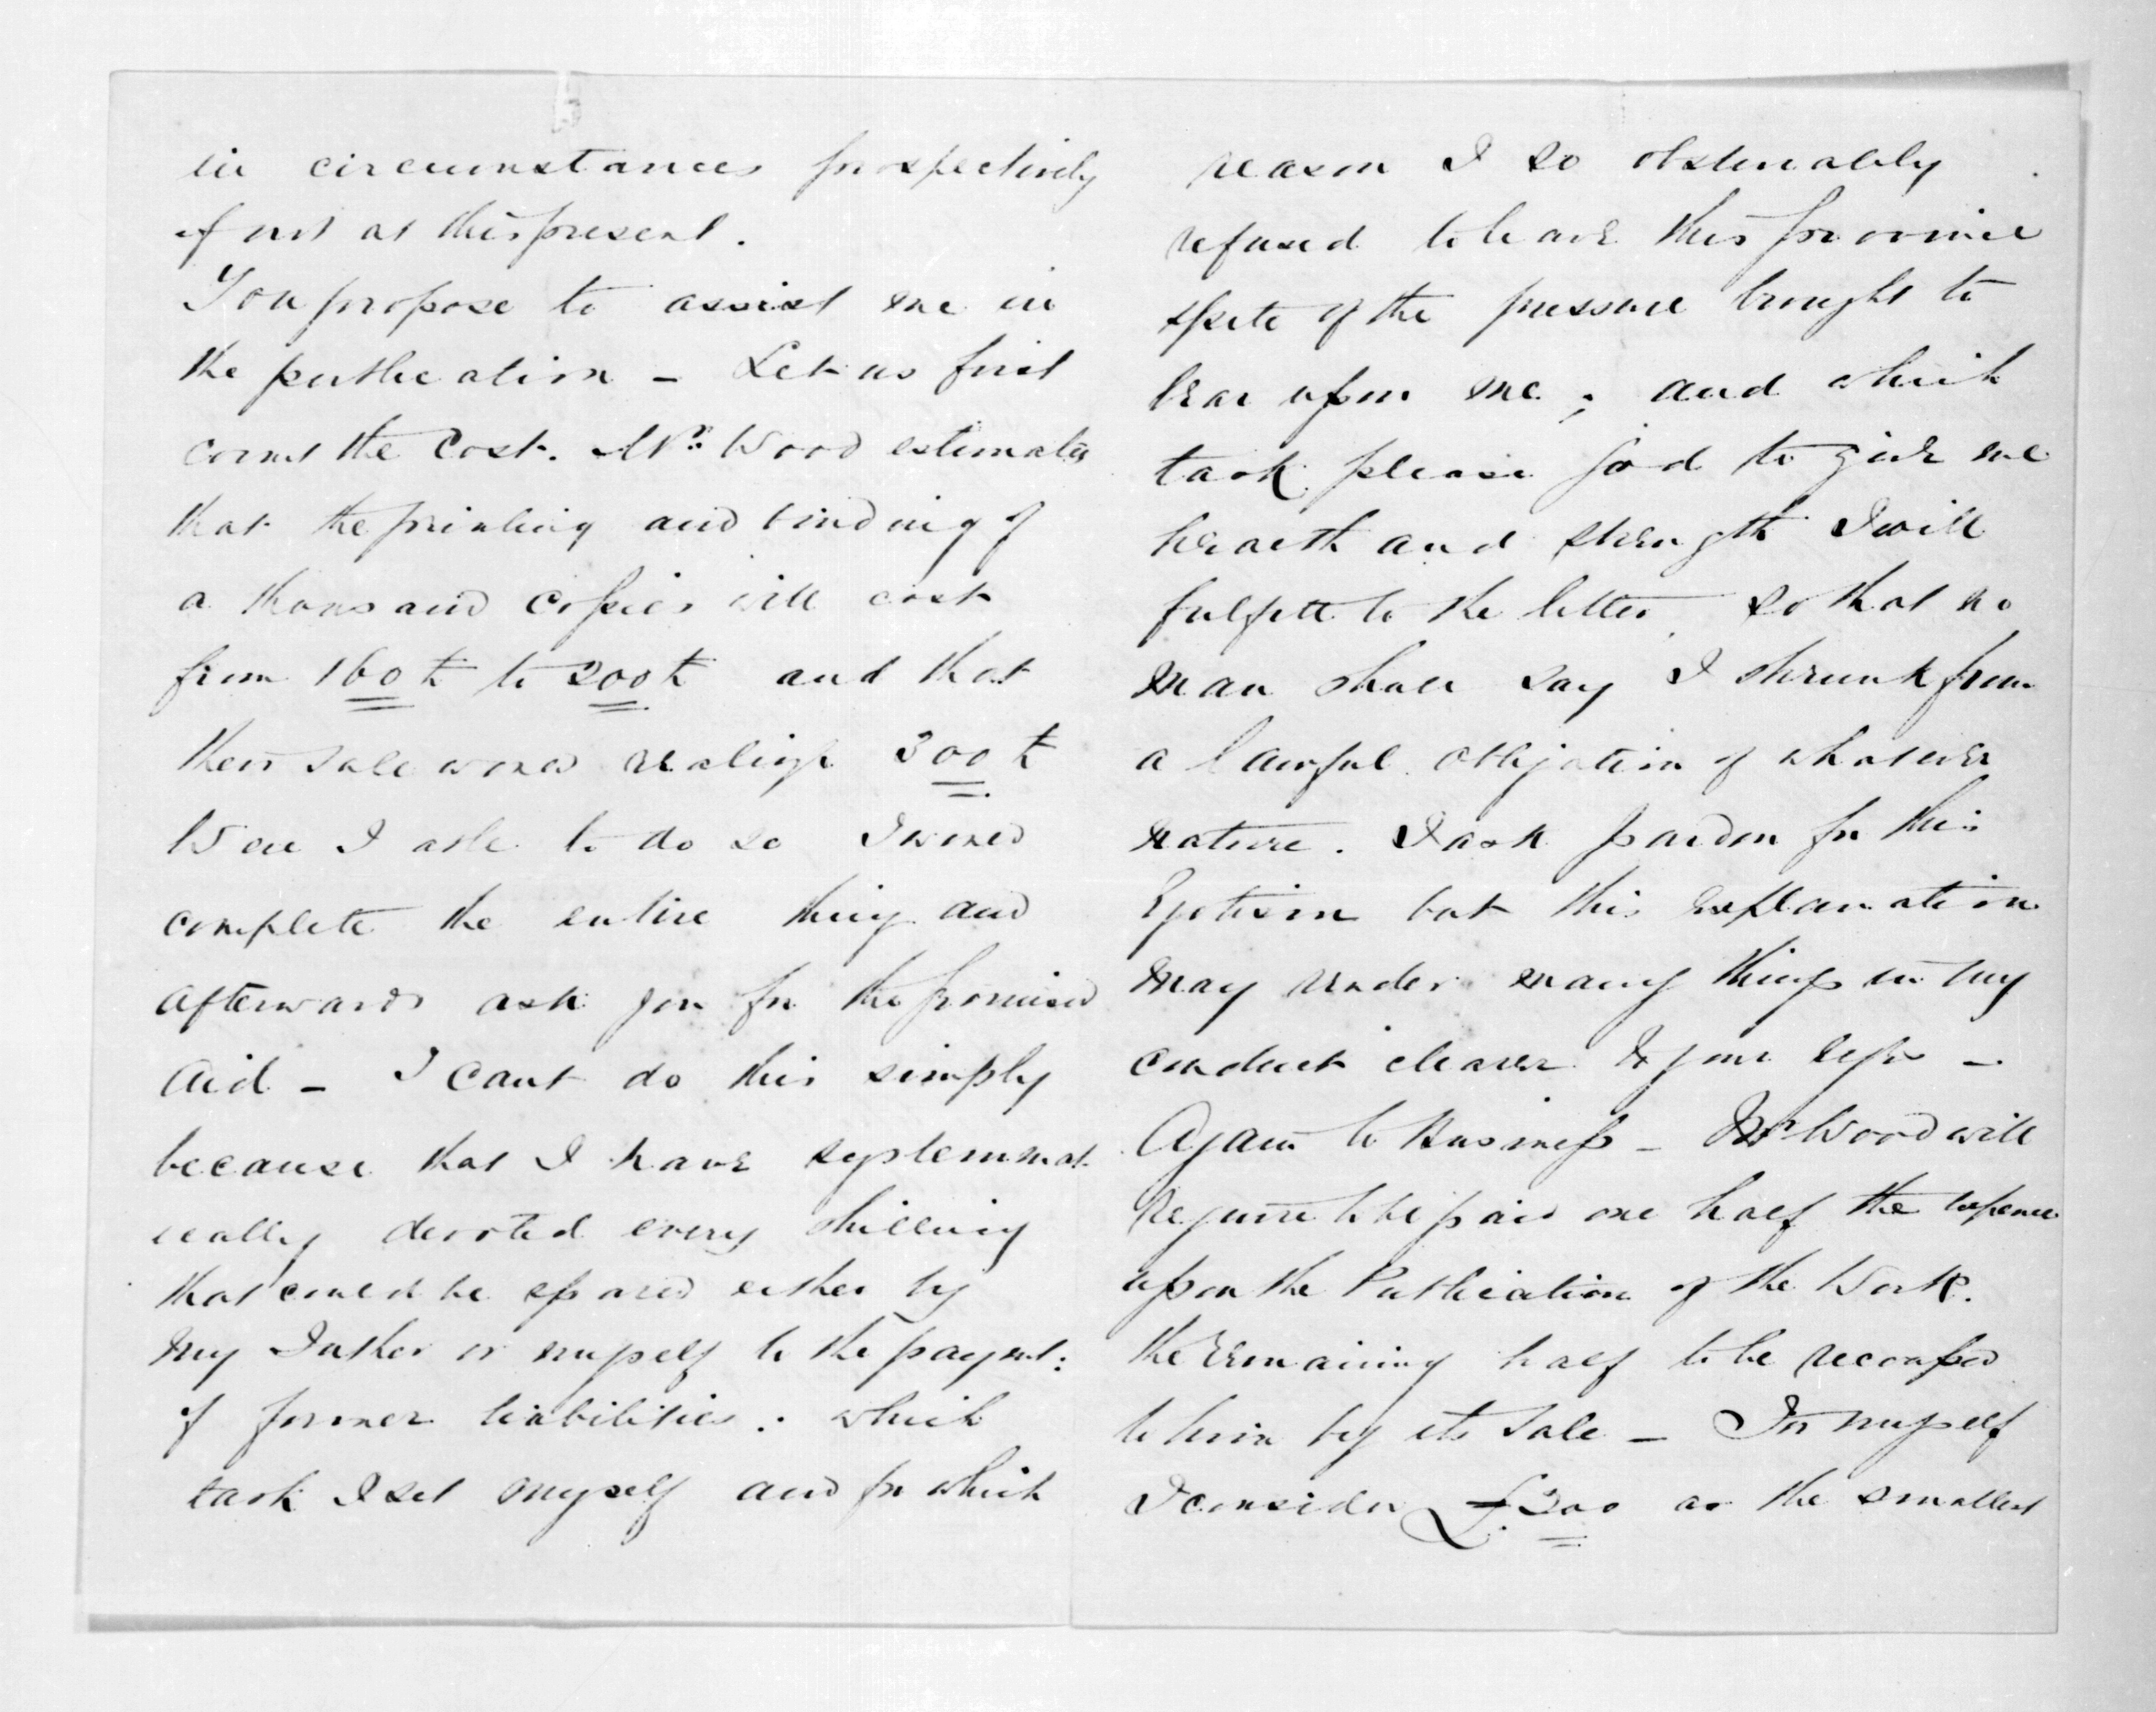 in circumstances prospectively
if not at this present.
You propose to assist me in
the publication – Let us first
count the Cost. Mr. Wood estimates
that the printing and binding of
a thousand Copies will cost
from 160£ to 200£ and that
their sale would realize 300£
Were I able to do so I would
complete the entire thing and
afterwards ask you for the promised
Aid – I cant do this simply
because that I have systemmat-
ically devoted every shilling
that could be spared either by
my Father or myself to the paymt:
of former liabilities: which
task I set myself and for which
reason I so obstinately
refused to leave this province
spite of the pressure brought to
bear upon me; and which
task please God to give me
health and strength I will
fulfill to the letter so that no
man shall say I shrunk from
a lawful obligation of whatever
nature. I ask pardon for this
Egotism but this explanation
may render many things in my
conduct clearer to your eyes –
Again to Business – Mr Wood will
require to be paid one half the expence
upon the Publication of the Work.
the remaining half to be recouped
to him by its Sale – For myself
I consider £200 as the smallest